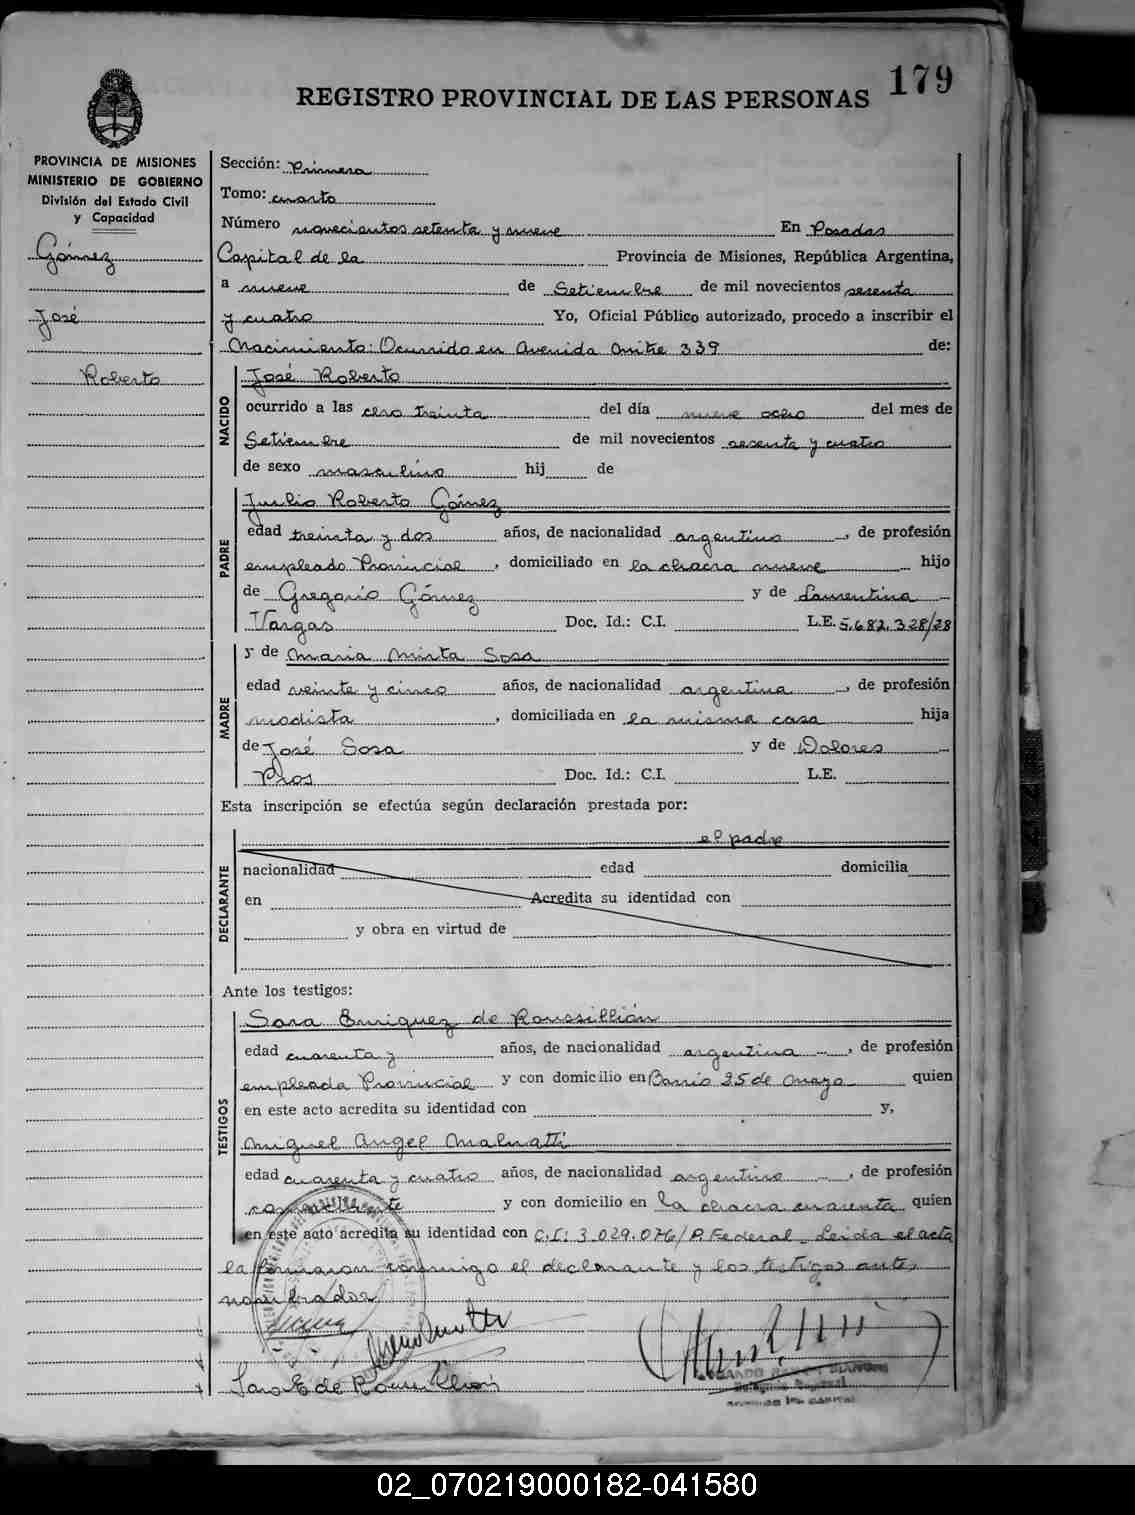 179
REGISTRO PROVINCIAL DE LAS PERSONAS
PROVINCIA DE MISIONES
MINISTERIO DE GOBIERNO
División del Estado Civil
y Capacidad
Gómez
José
Roberto
Sección: Primera
Tomo: cuarto
Número novecientos setenta y nueve En Posadas
Capital de la Provincia de Misiones, República Argentina,
a nueve de Setiembre de mil novecientos sesenta
y cuatro Yo, Oficial Público autorizado, procedo a inscribir el
Nacimiento: Ocurrido en Avenida Mitre 339 de:
NACIDO
José Roberto
ocurrido a las cero treinta del día nueve ocho del mes de
Setiembre de mil novecientos sesenta y cuatro
de sexo masculino hij de
PADRE
Julio Roberto Gómez
edad treinta y dos años, de nacionalidad argentino, de profesión
empleado Provincial, domiciliado en la chacra nueve hijo
de Gregorio Gómez y de Laurentina
Vargas Doc. Id.: C.I. L.E. 5.682.328/28
MADRE
y de Maria Mirta Sosa
edad veinte y cinco años, de nacionalidad argentina, de profesión
modista, domiciliada en la misma casa hija
de José Sosa y de Dolores
Pros Doc. Id.: C.I. L.E.
Esta inscripción se efectúa según declaración prestada por:
DECLARANTE
el padre
nacionalidad edad domicilia
en Acredita su identidad con
y obra en virtud de
Ante los testigos:
TESTIGOS
Sara Enriquez de Roussillión
edad cuarenta y años, de nacionalidad argentina, de profesión
empleada Provincial y con domicilio en Barrio 25 de Mayo quien
en este acto acredita su identidad con y,
Miguel Angel Malvatti
edad cuarenta y cuatro años, de nacionalidad argentino, de profesión
comerciante y con domicilio en la chacra cuarenta quien
en este acto acredita su identidad con C.I: 3.029.076/P. Federal. Leida el acta
la firmaron conmigo el declarante y los testigos antes
nombrados
Sara E de Roussillión
02_070219000182-041580